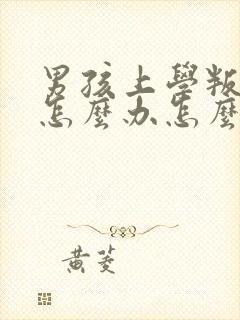 男孩上學叛
怎麼办怎麼
黄菱